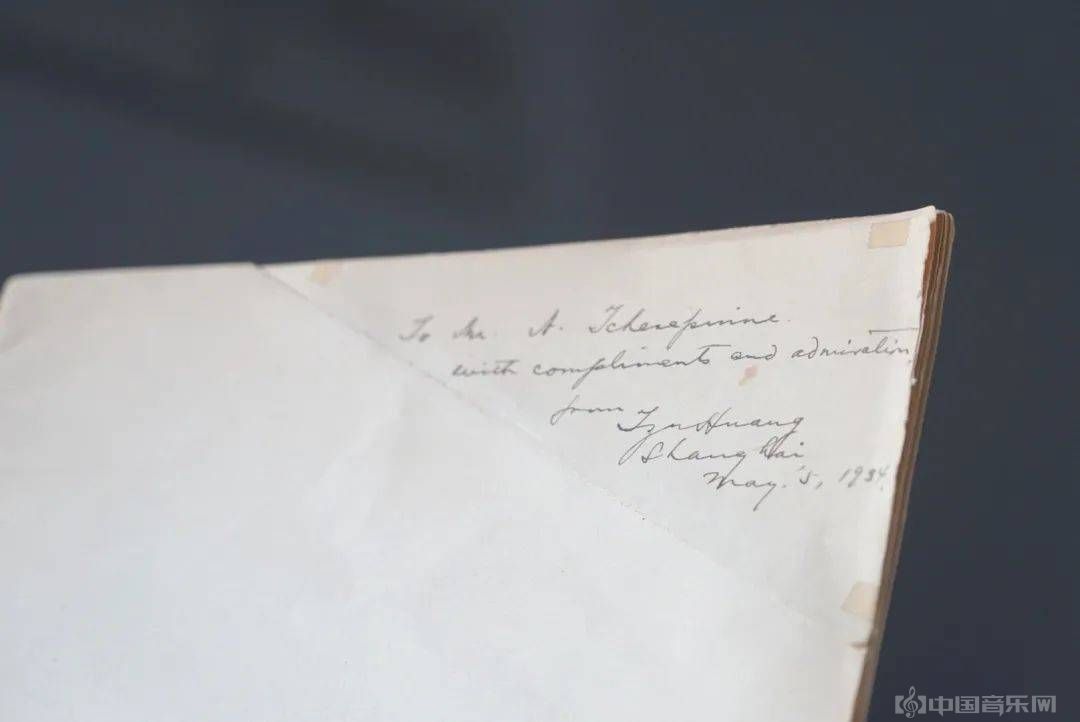 To Mr. A. Tcherepnine.
with compliments and admiration,
from Tzu Huang
Shanghai
May. 5, 1934.
中国音乐网